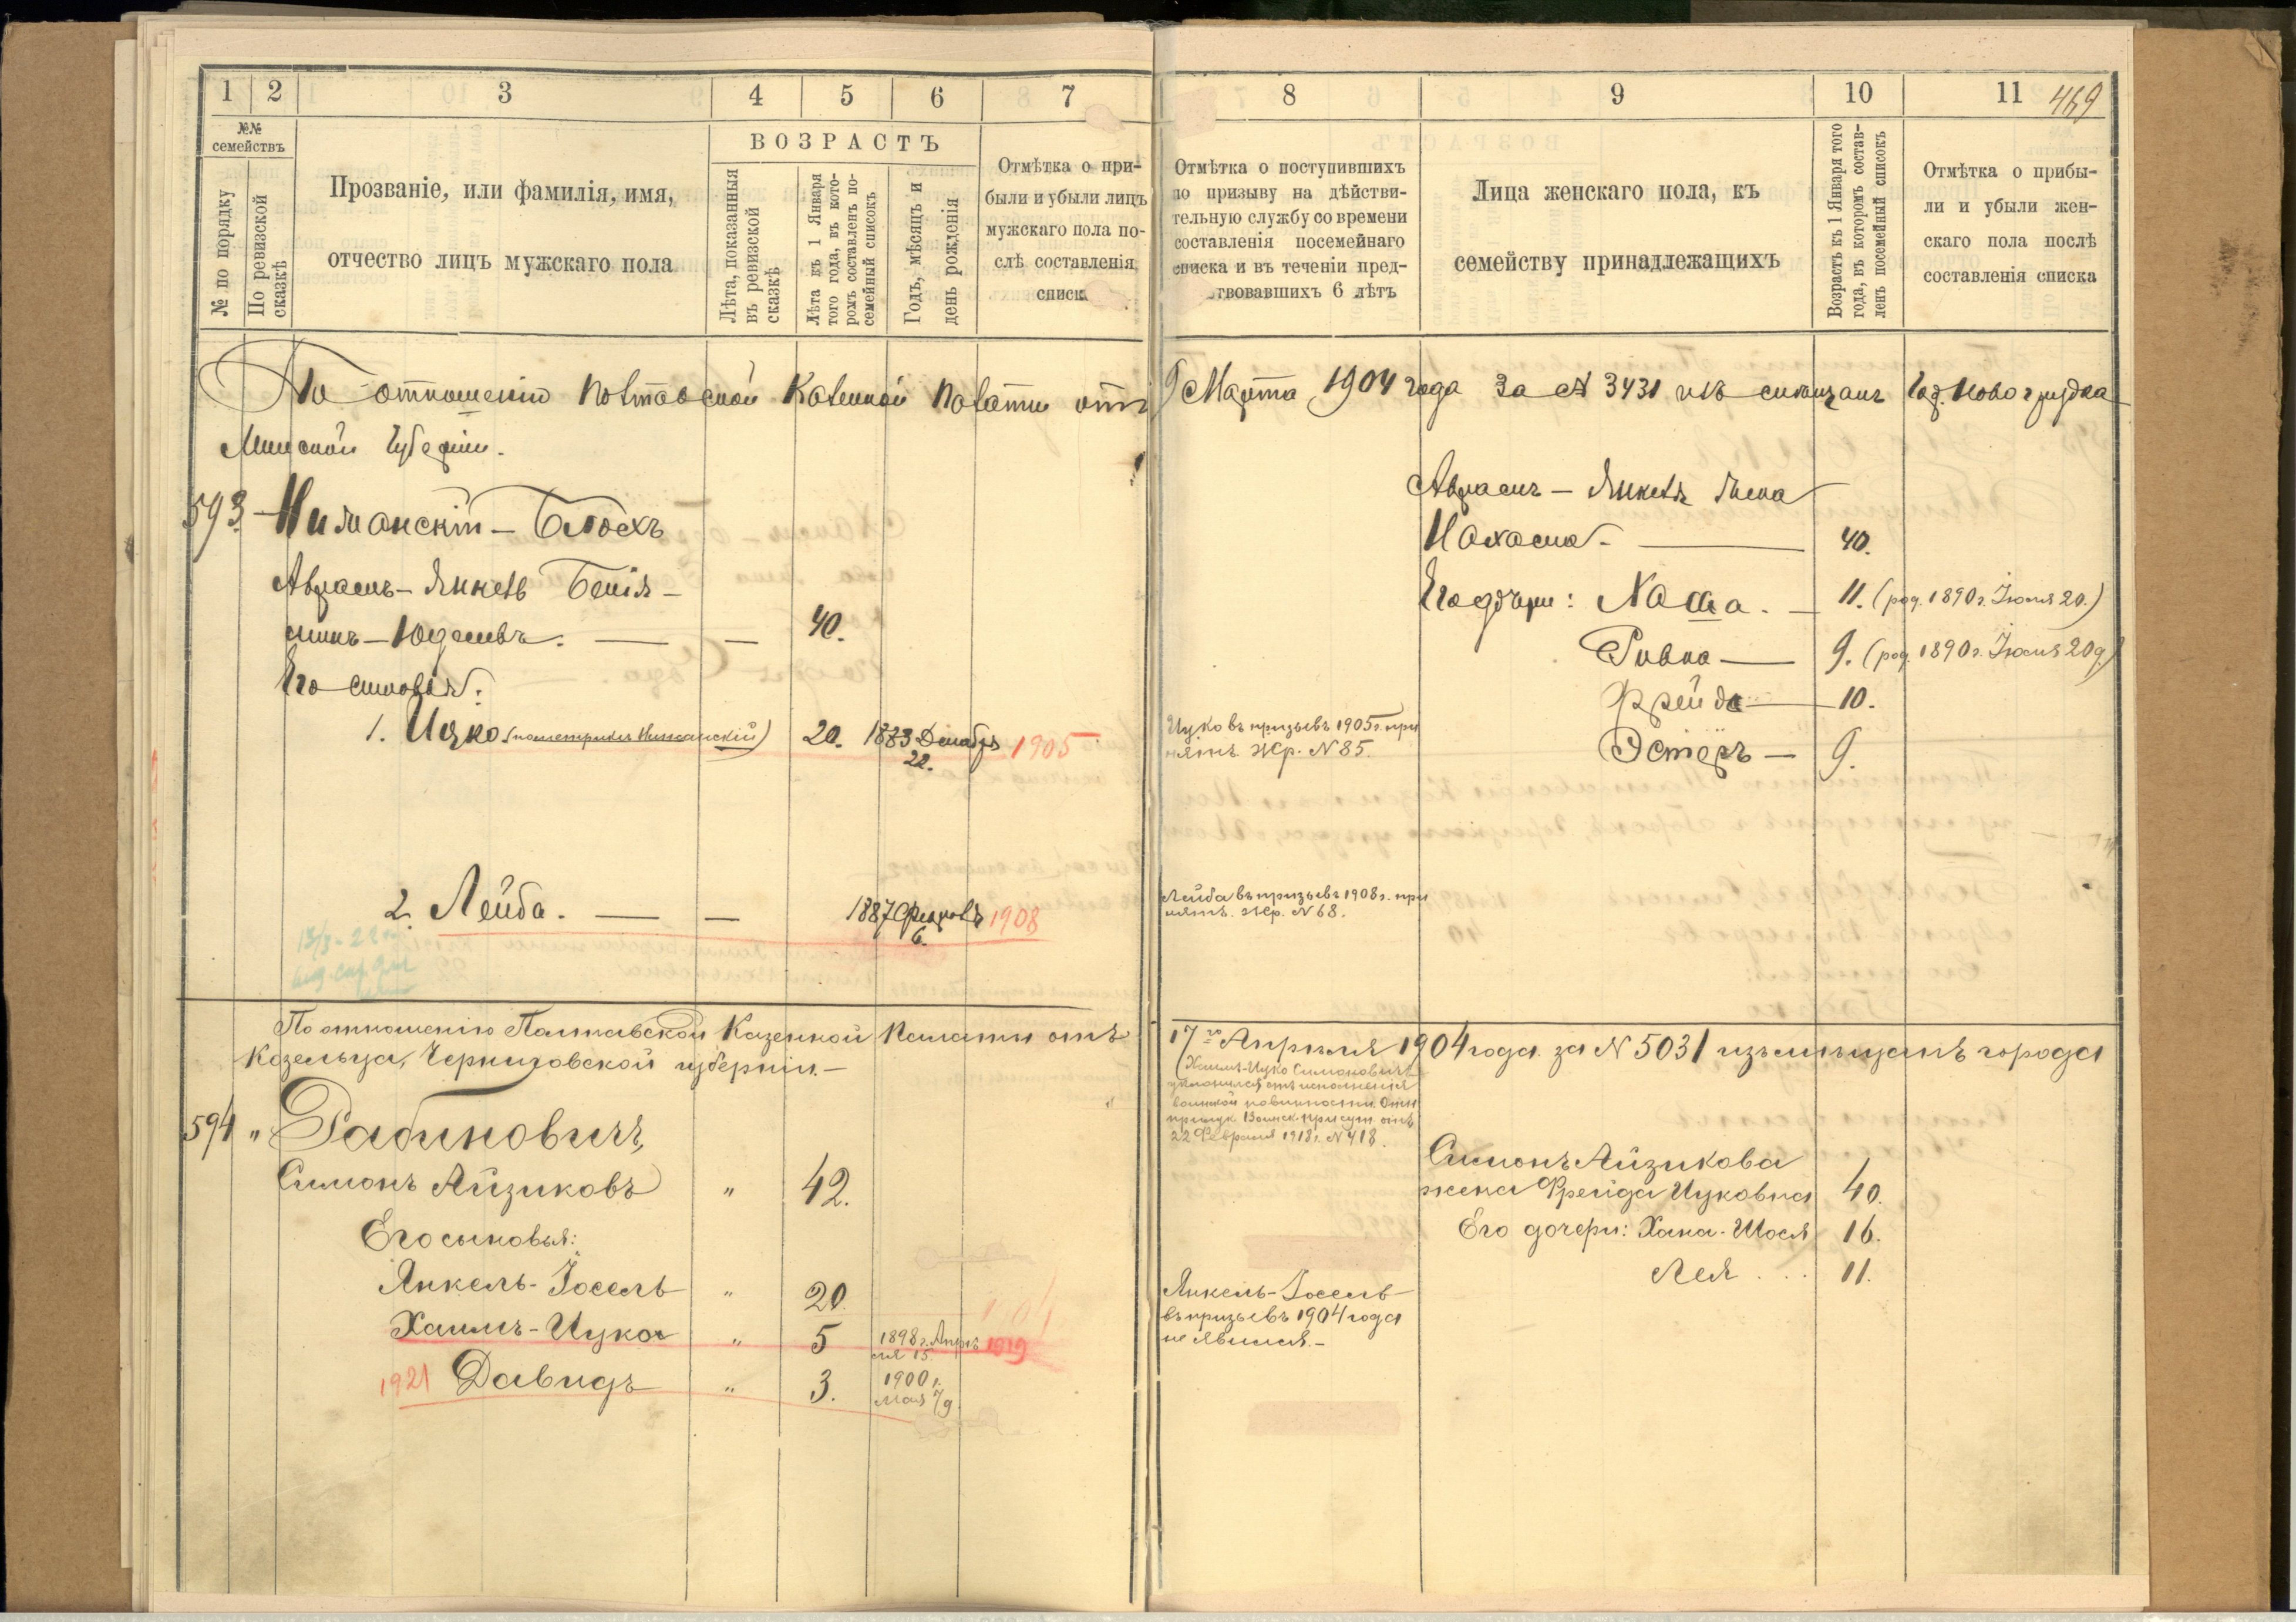 1 2 3 4 5 6 7
№№ семействъ
№ по порядку
По ревизской сказкѣ
Прозваніе, или фамилія, имя,
отчество лицъ мужскаго пола
ВОЗРАСТЪ
Лѣта, показанныя въ ревизской сказкѣ
Лѣта къ 1 Января того года, въ кото-ромъ составленъ по-семейный списокъ
Годъ, мѣсяцъ и день рожденія
Отмѣтка о при-
были и убыли лицъ
мужскаго пола по-
слѣ составленія
списк
8 9 10 11 469
Отмѣтка о поступившихъ
по призыву на дѣйстви-
тельную службу со времени
составленія посемейнаго
списка и въ теченіи пред-
ствовавшихъ 6 лѣтъ
Лица женскаго пола, къ
семейству принадлежащихъ
Возрастъ къ 1 Января того года, въ которомъ состав-ленъ посемейный списокъ
Отмѣтка о прибы-
ли и убыли жен-
скаго пола послѣ
составленія списка
По отношенію Полтавской Казенной Палаты отъ 9 Марта 1904 года за № 3431 изъ мѣщанъ гор. Новогрудка
Минской Губерніи.
593 Ниманскій - Блохъ
Аврамъ - Янкель Беніа-
минъ - Юделевъ. — — 40.
Его сыновья:
1. Ицко (по метрикѣ Ниманскій) 20. 1883 Декабря 22. 1905
2. Лейба. — — 1887 Февраля 6. 1908
Ицко въ призывъ 1905 г. при
нятъ. Жр. N 85.
Лейба въ призывъ 1908 г. при
нятъ. Жр. N 68.
Аврамъ - Янкеля жена
Нахама — 40.
Его дочери: Хаша. — 11. (род. 1890 г. Іюля 20.)
Ривка — 9. (род. 1890 г. Іюля 20 д)
Фрейда — 10.
Эстеръ — 9.
По отношенію Полтавской Казенной Палаты отъ 17го Апрѣля 1904 года за N 5031 изъ мѣщанъ города
Козельца, Черниговской губерніи. —
594 " Рабиновичъ,
Симонъ Айзиковъ " 42.
Его сыновья:
Янкель - Іосель " 20. 1904
Хаимъ - Ицко " 5 1898 г. Апрѣля 15. 1919
1921 Давидъ " 3. 1900 г. Мая 7/9
(Хаимъ-Ицко Симоновичъ
уклонился отъ исполненія
воинской повинности. Отн
Воинск. присут. отъ
22 Февраля 1918 г. N 418.
Янкель - Іосель
въ призывъ 1904 года
не явился. -
Симонъ Айзикова
жена Фрейда Ицковна 40.
Его дочери: Хана - Шося 16.
Лея . . . 11.